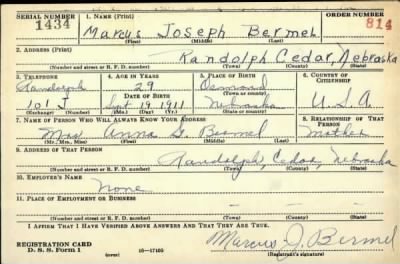 SERIAL NUMBER 1. NAME (Print) ORDER NUMBER
1434 Marcus Joseph Bermel 814
(First) (Middle) (Last)
2. ADDRESS (Print)
Randolph Cedar, Nebraska
(Number and street or R. F. D. number) (Town) (County) (State)
3. TELEPHONE 4. AGE IN YEARS 5. PLACE OF BIRTH 6. COUNTRY OF CITIZENSHIP
Randolph 29 Osmond
DATE OF BIRTH (Town or county)
101 J Sept. 19, 1911 Nebraska U.S.A.
(Exchange) (Number) (Mo.) (Day) (Yr.) (State or country)
7. NAME OF PERSON WHO WILL ALWAYS KNOW YOUR ADDRESS 8. RELATIONSHIP OF THAT PERSON
Mrs Anna G. Bermel Mother
(Mr., Mrs., Miss) (First) (Middle) (Last)
9. ADDRESS OF THAT PERSON
Randolph, Cedar, Nebraska
(Number and street or R. F. D. number) (Town) (County) (State)
10. EMPLOYER'S NAME
None
11. PLACE OF EMPLOYMENT OR BUSINESS
— —
(Number and street or R. F. D. number) (Town) (County) (State)
I AFFIRM THAT I HAVE VERIFIED ABOVE ANSWERS AND THAT THEY ARE TRUE.
REGISTRATION CARD Marcus J. Bermel
D. S. S. Form 1 (over) 16—17105 (Registrant's signature)